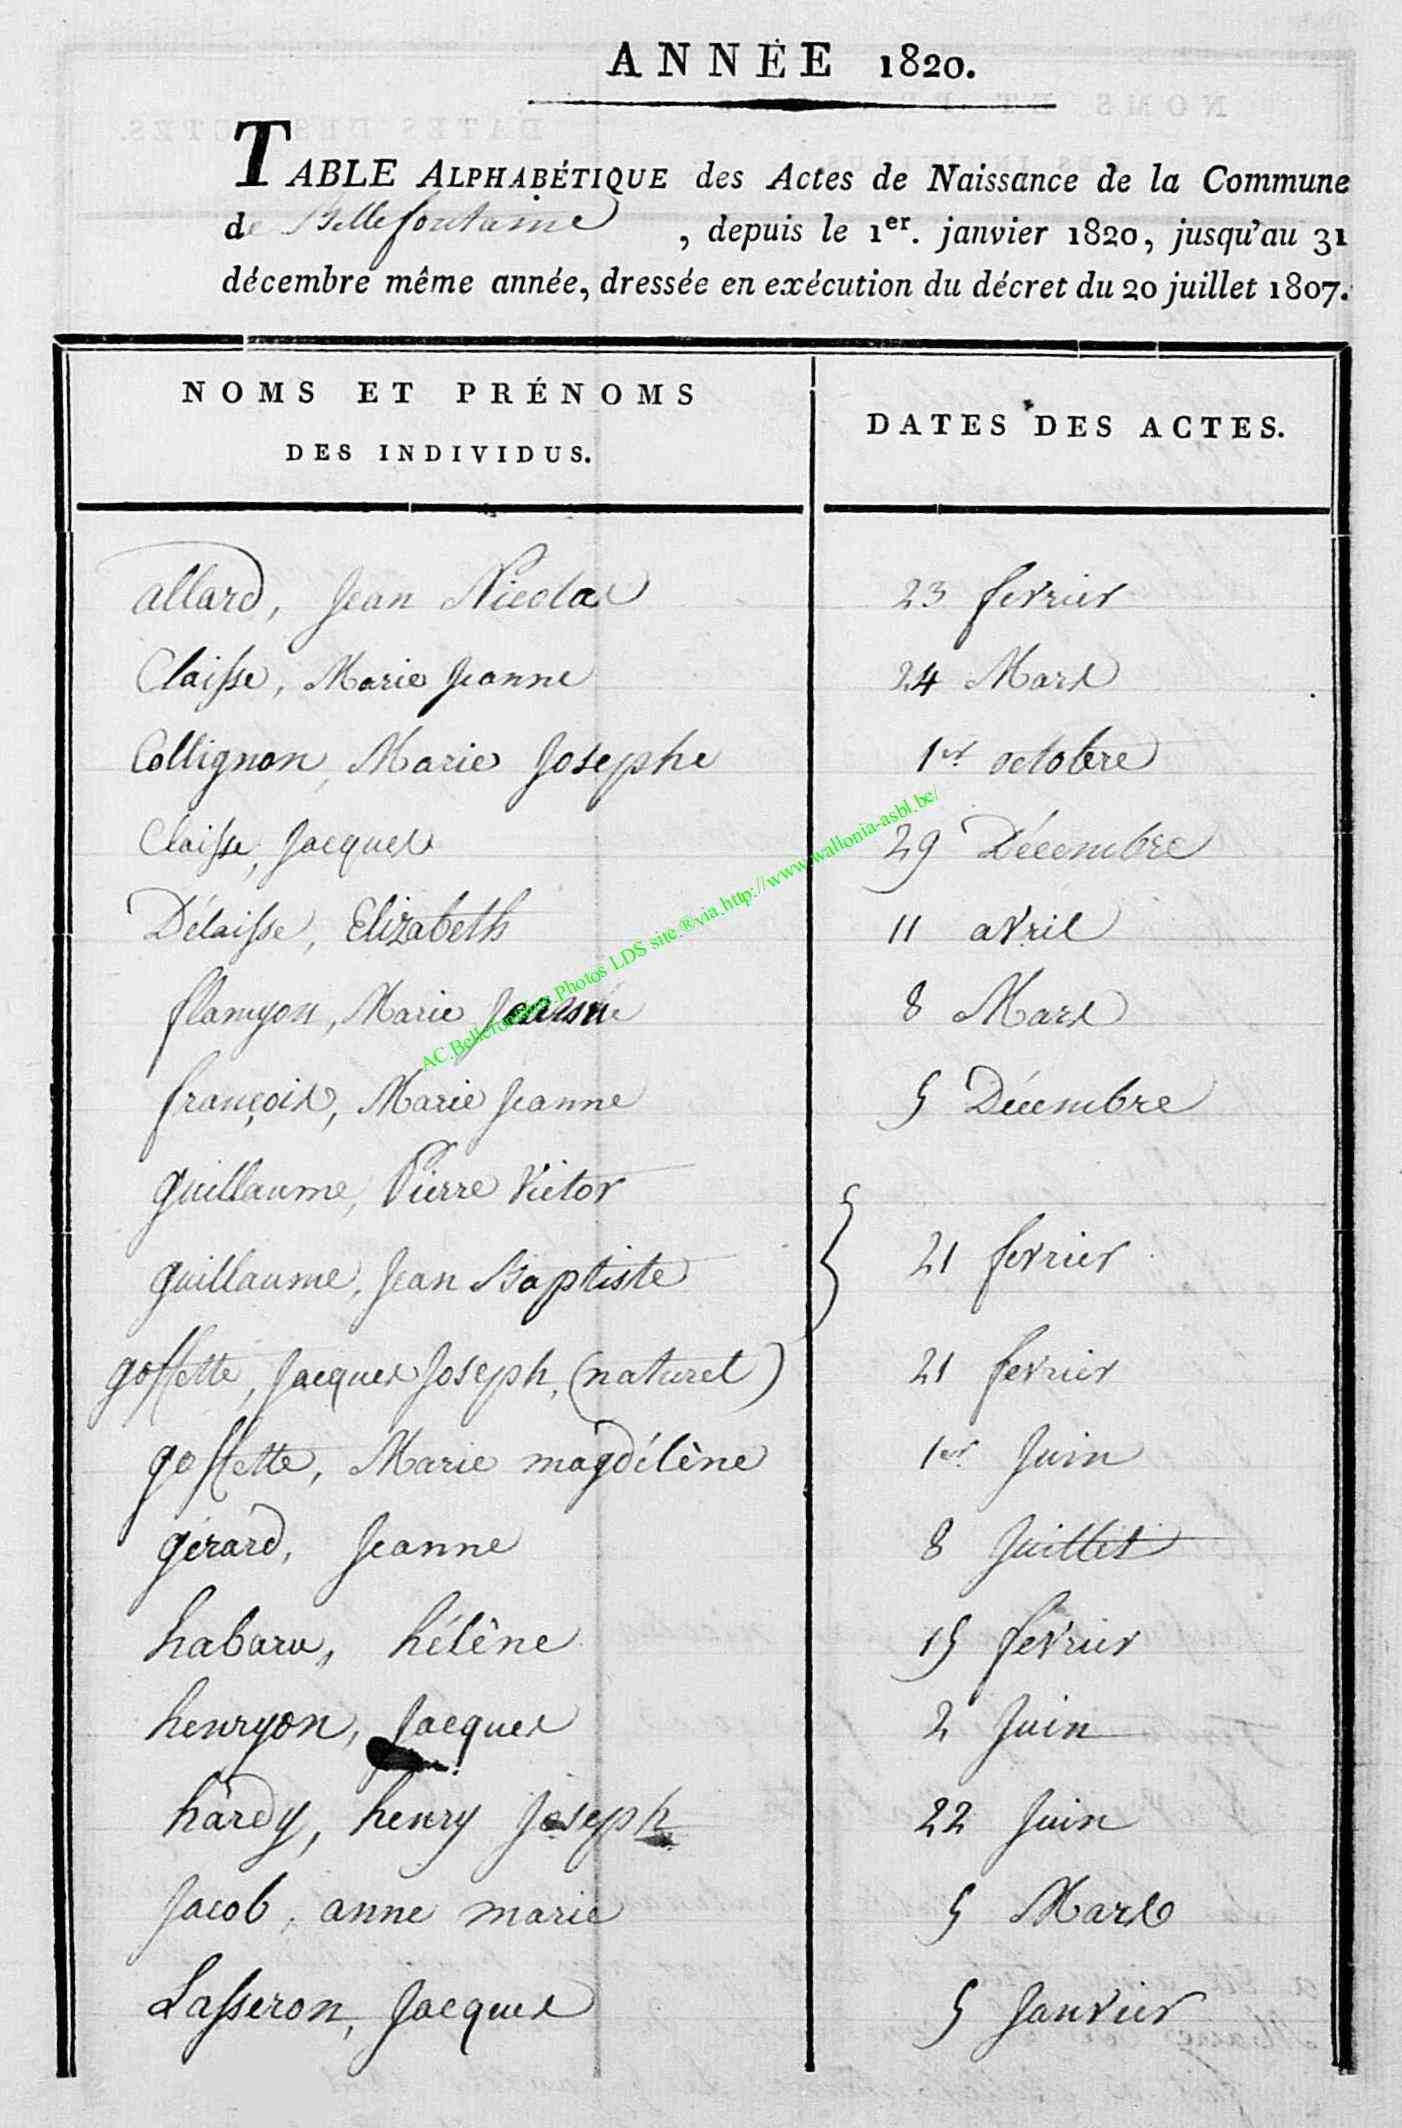 ANNÉE 1820.
TABLE ALPHABÉTIQUE des Actes de Naissance de la Commune
de Bellefontaine, depuis le 1er. janvier 1820, jusqu'au 31
décembre même année, dressée en exécution du décret du 20 juillet 1807.
NOMS ET PRÉNOMS
DES INDIVIDUS.
DATES DES ACTES.
allard, Jean Nicolas 23 fevrier
Claisse, Marie Jeanne 24 Mars
Collignon, Marie Josephe 1er octobre
Claisse, Jacques 29 Décembre
Délaisse, Elizabeth 11 avril
flamyon, Marie Jeanne 8 Mars
françois, Marie Jeanne 5 Décembre
guillaume, Pierre Victor
guillaume, Jean Baptiste } 21 fevrier
goffette, Jacques Joseph, (naturel) 21 fevrier
goffette, Marie magdélène 1er Juin
gérard, Jeanne 8 Juillet
habaru, hélène 15 fevrier
henryon, Jacques 2 Juin
hardy, henry Joseph 22 Juin
Jacob, anne marie 5 Mars
Lasseron, Jacques 5 Janvier
AC.Bellefontaine.Photos LDS site.®via.http://www.wallonia-asbl.be/